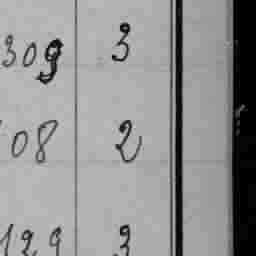 309 3
08 2
129 3